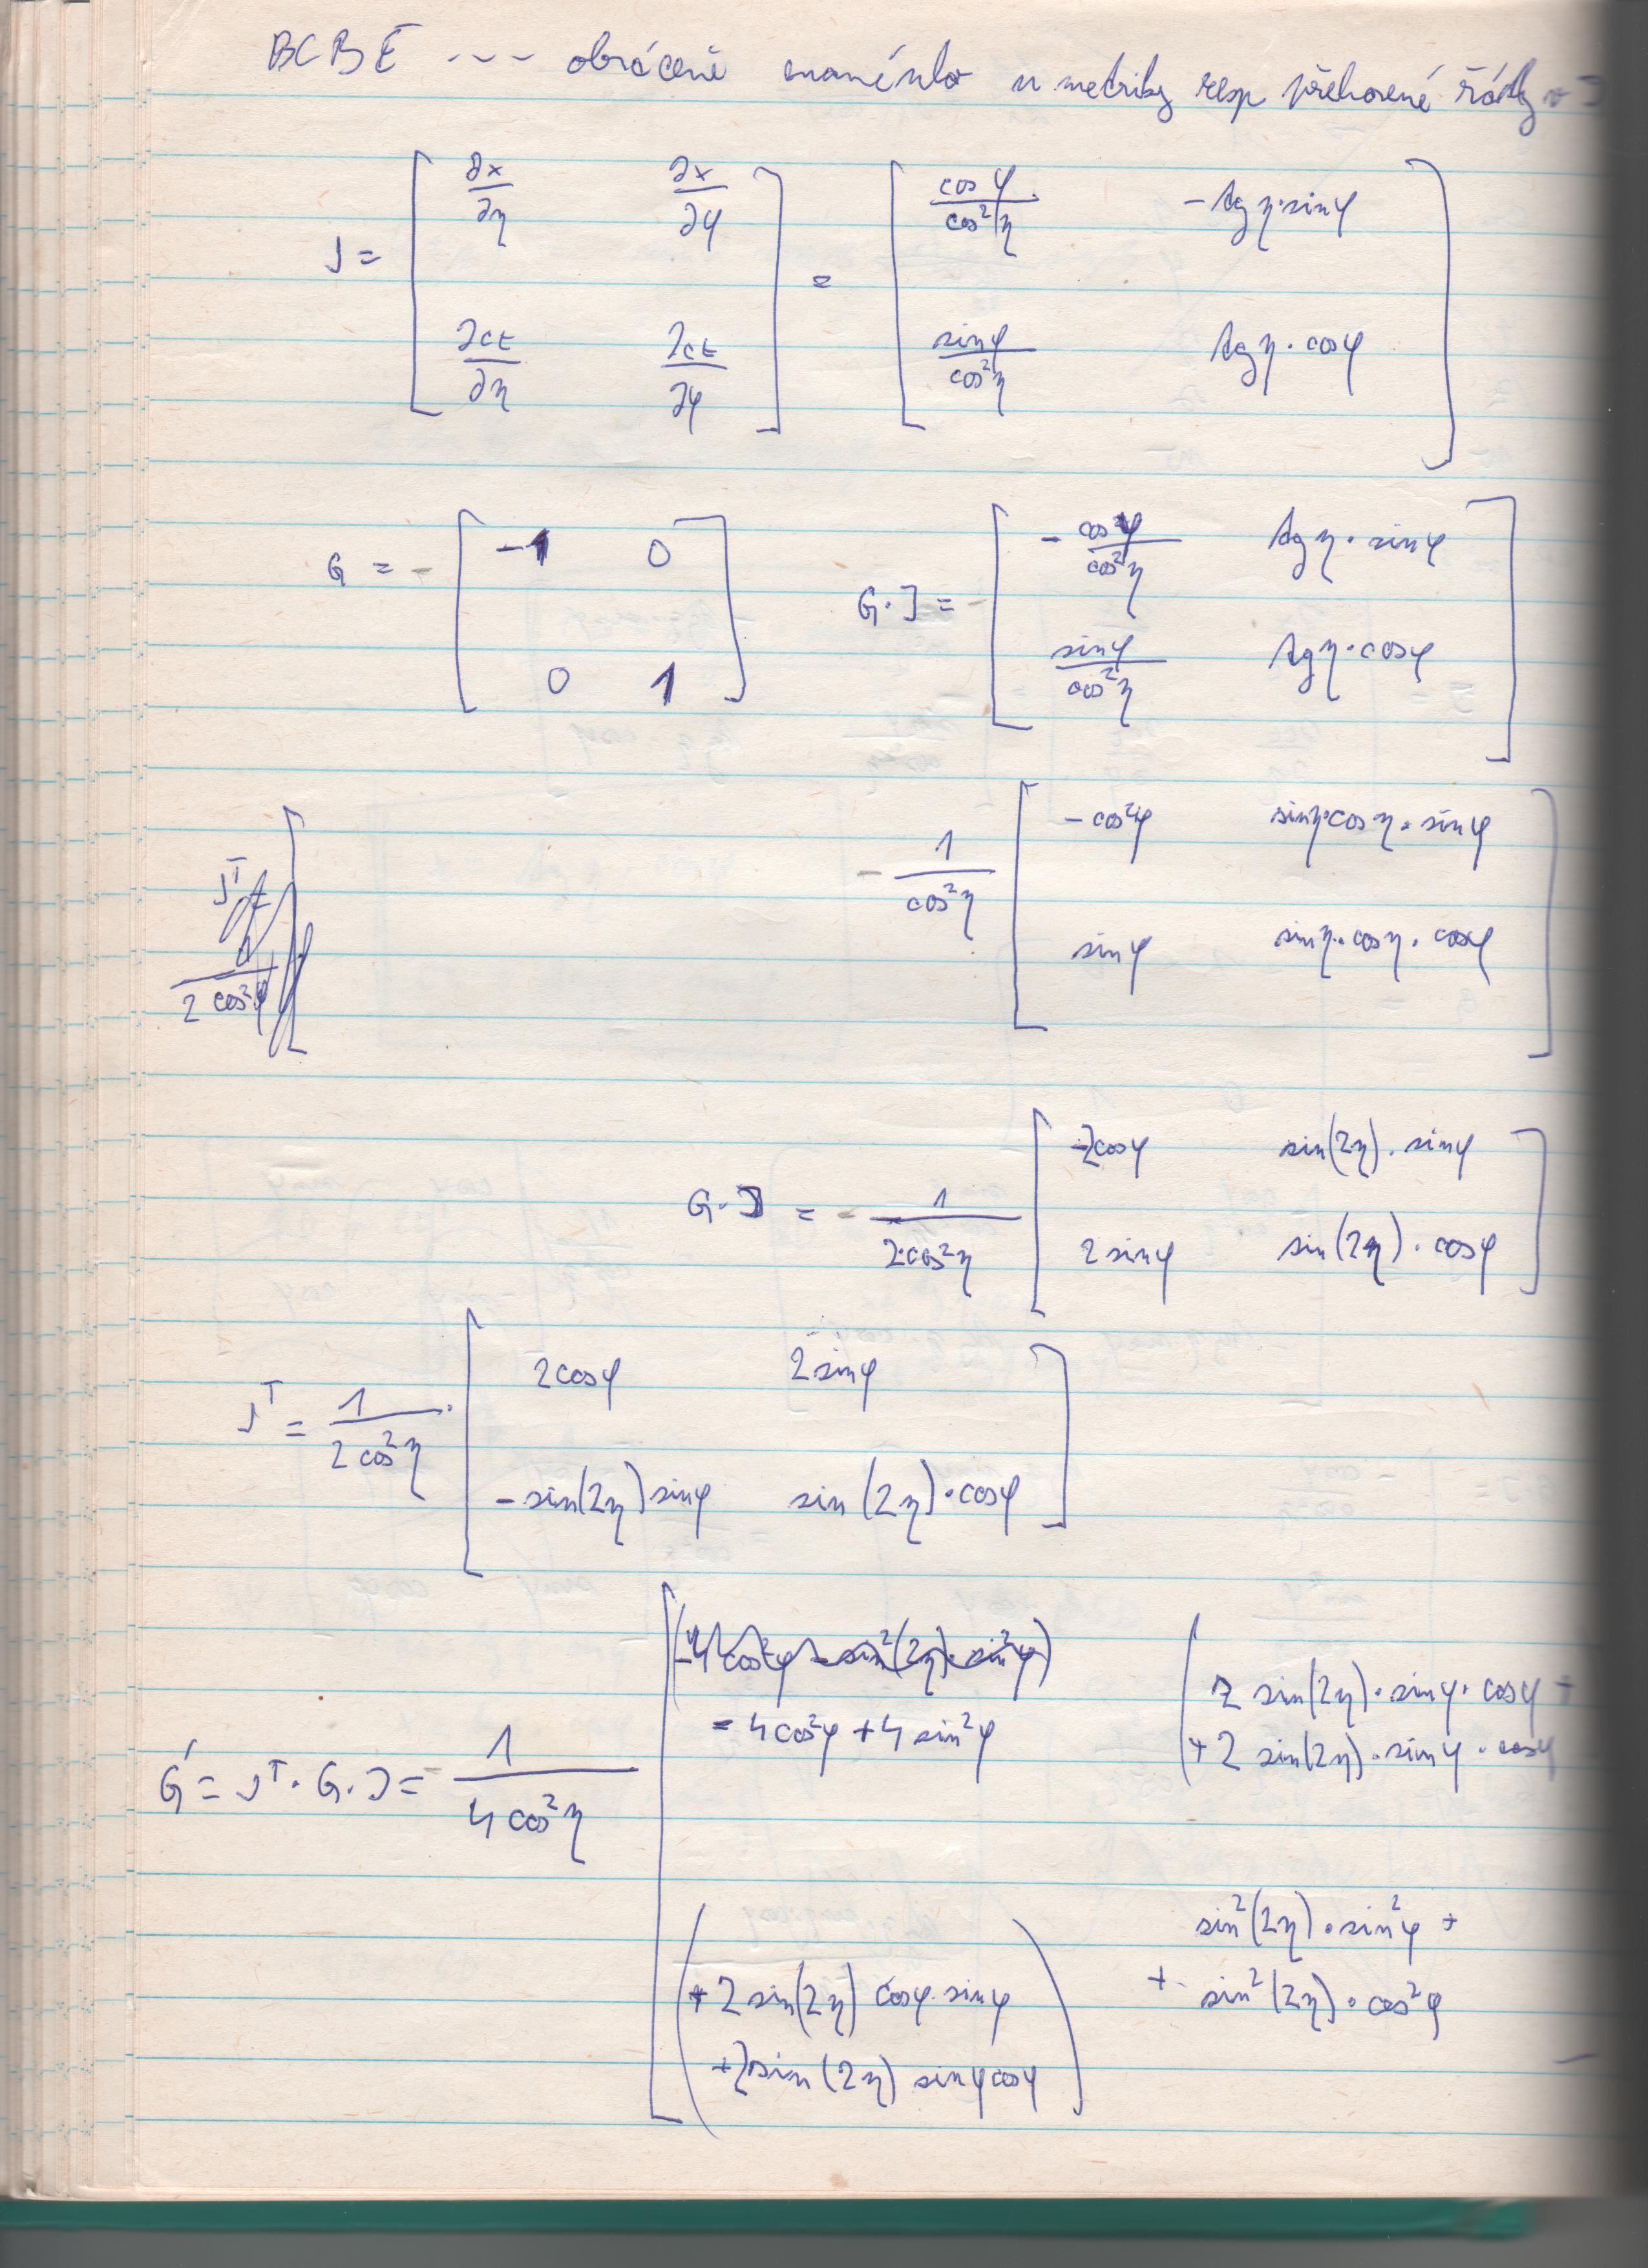 BCBE --- obráceně znaménko u metriky resp přehozené řádky v J
J = [ ∂x/∂η ∂x/∂φ ; ∂ct/∂η ∂ct/∂φ ] = [ cosφ/cos²η -tgη·sinφ ; sinφ/cos²η tgη·cosφ ]
G = - [ -1 0 ; 0 1 ] G·J = - [ -cosφ/cos²η tgη·sinφ ; sinφ/cos²η tgη·cosφ ]
- 1/cos²η [ -cosφ sinη·cosη·sinφ ; sinφ sinη·cosη·cosφ ]
G·J = - 1/(2·cos²η) [ -2cosφ sin(2η)·sinφ ; 2sinφ sin(2η)·cosφ ]
J^T = 1/(2cos²η) · [ 2cosφ 2sinφ ; -sin(2η)sinφ sin(2η)·cosφ ]
G' = J^T·G·J = - 1/(4cos²η) [ = 4cos²φ + 4sin²φ ( 2 sin(2η)·sinφ·cosφ + + 2 sin(2η)·sinφ·cosφ ; ( + 2sin(2η) cosφ·sinφ + 2sin(2η) sinφcosφ ) sin²(2η)·sin²φ + + sin²(2η)·cos²φ